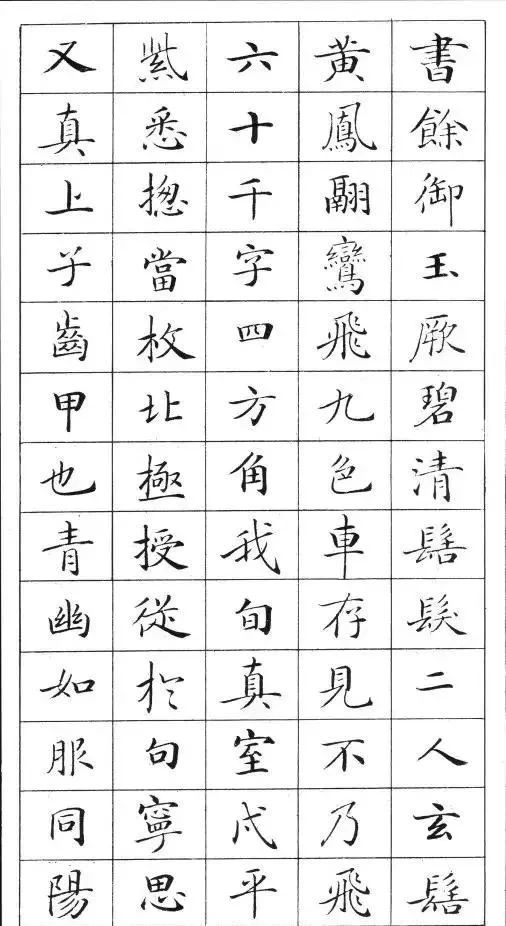 書餘御玉厥碧清髻髮二人玄髻
黃鳳翮鸞飛九色車存見不乃飛
六十千字四方角我旬真室戍平
紫悉揔當枚北極授從於句寧思
又真上子齒甲也青幽如服同陽